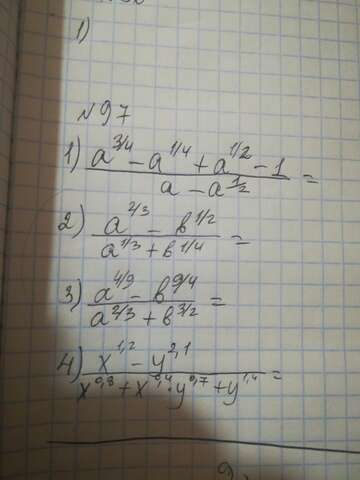 1)
№97
1) (a^{3/4} - a^{1/4} + a^{1/2} - 1) / (a - a^{1/2}) =
2) (a^{2/3} - в^{1/2}) / (a^{1/3} + в^{1/4}) =
3) (a^{4/9} - в^{9/4}) / (a^{2/3} + в^{3/2}) =
4) (x^{1,2} - y^{2,1}) / (x^{0,8} + x^{0,4} · y^{0,7} + y^{1,4}) =